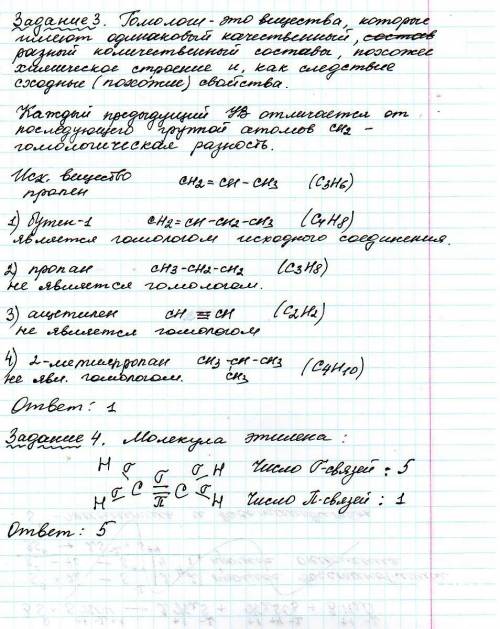 Задание 3. Гомологи - это вещества, которые
имеют одинаковый качественный,
разный количественный составы, похожее
химическое строение и, как следствие
сходные (похожие) свойства.
Каждый предыдущий УВ отличается от
последующего группой атомов CH2 -
гомологическая разность.
Исх. вещество
пропен CH2=CH-CH3 (C3H6)
1) бутен-1 CH2=CH-CH2-CH3 (C4H8)
является гомологом исходного соединения.
2) пропан CH3-CH2-CH2 (C3H8)
не является гомологом.
3) ацетилен CH≡CH (C2H2)
не является гомологом
4) 2-метилпропан CH3-CH-CH3 (C4H10)
CH3
не явл. гомологом.
Ответ: 1
Задание 4. Молекула этилена:
H σ σ σ H
Число σ-связей: 5
H σ C π C σ H
Число π-связей: 1
Ответ: 5